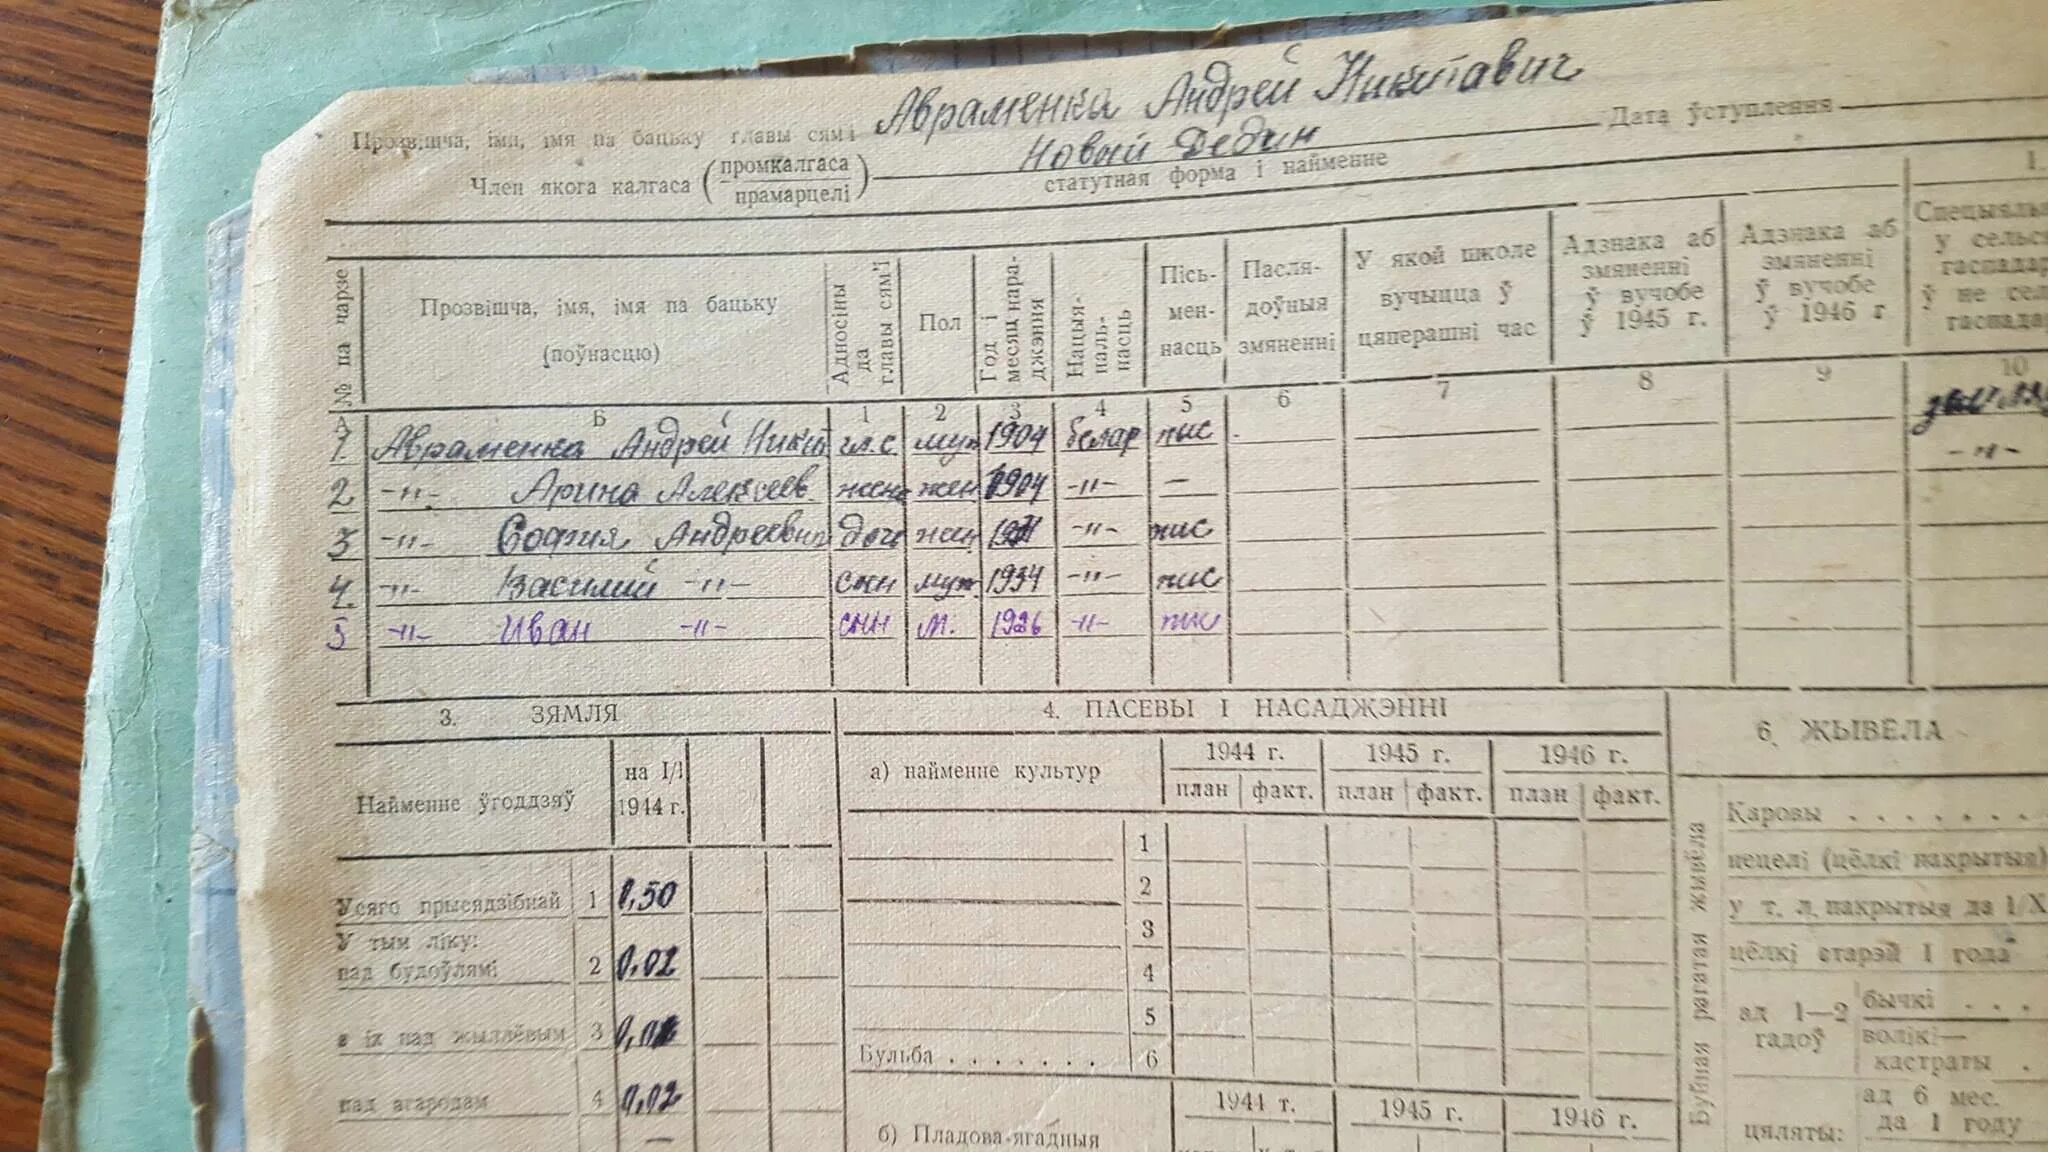 Прозвішча, імя, імя па бацьку главы сям'і Авраменка Андрей Никитавич
Член якога калгаса (промкалгаса / прамарцелі) Новый Дедин Дата ўступлення
статутная форма і найменне
1.
№ па чарзе Прозвішча, імя, імя па бацьку (поўнасцю) Адносіны да главы сям'і Пол Год і месяц нараджэння Нацыянальнасць Пісьменнасць Паслядоўныя змяненні У якой школе вучыцца ў цяперашні час Адзнака аб змяненні ў вучобе ў 1945 г. Адзнака аб змяненні ў вучобе ў 1946 г
А Б 1 2 3 4 5 6 7 8 9 10
1. Авраменка Андрей Никит гл.с. муж 1904 белар пис
2 -"- Арина Алексеев. жена жен 1904 -"- — -"-
3 -"- София Андреевна доч жен -"- пис
4. -"- Василий -"- сын муж 1934 -"- пис
5 -"- Иван -"- сын м. 1926 -"- пис
3. ЗЯМЛЯ
Найменне ўгоддзяў на I/I 1944 г.
Усяго прысядзібнай 1 0,50
У тым ліку:
пад будоўлямі 2 0,02
з іх пад жыллёвым 3
пад агародам 4 0,02
—
4. ПАСЕВЫ І НАСАДЖЭННІ
а) найменне культур 1944 г. 1945 г. 1946 г.
план факт. план факт. план факт.
1
2
3
4
5
Бульба . . . . . . . 6
1944 г. 1945 г. 1946 г.
б) Пладова-ягадныя
6. ЖЫВЁЛА
Буйная рагатая жывёла
Каровы . . . . . . .
нецелі (цёлкі пакрытыя)
у т. л. пакрытыя да 1/X
цёлкі старэй 1 года
ад 1—2 гадоў
бычкі . . .
волікі—
кастраты .
цяляты:
ад 6 мес.
да 1 году